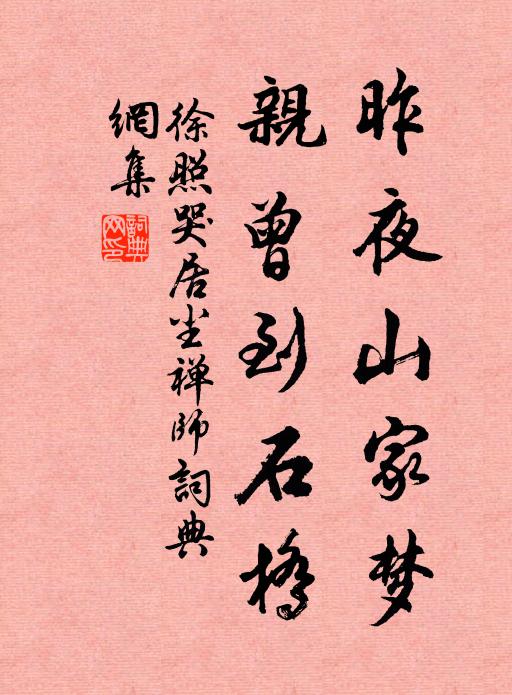 昨夜山家梦
親曾到石橋
徐照哭居尘禅師詞典
網集
詞典网印